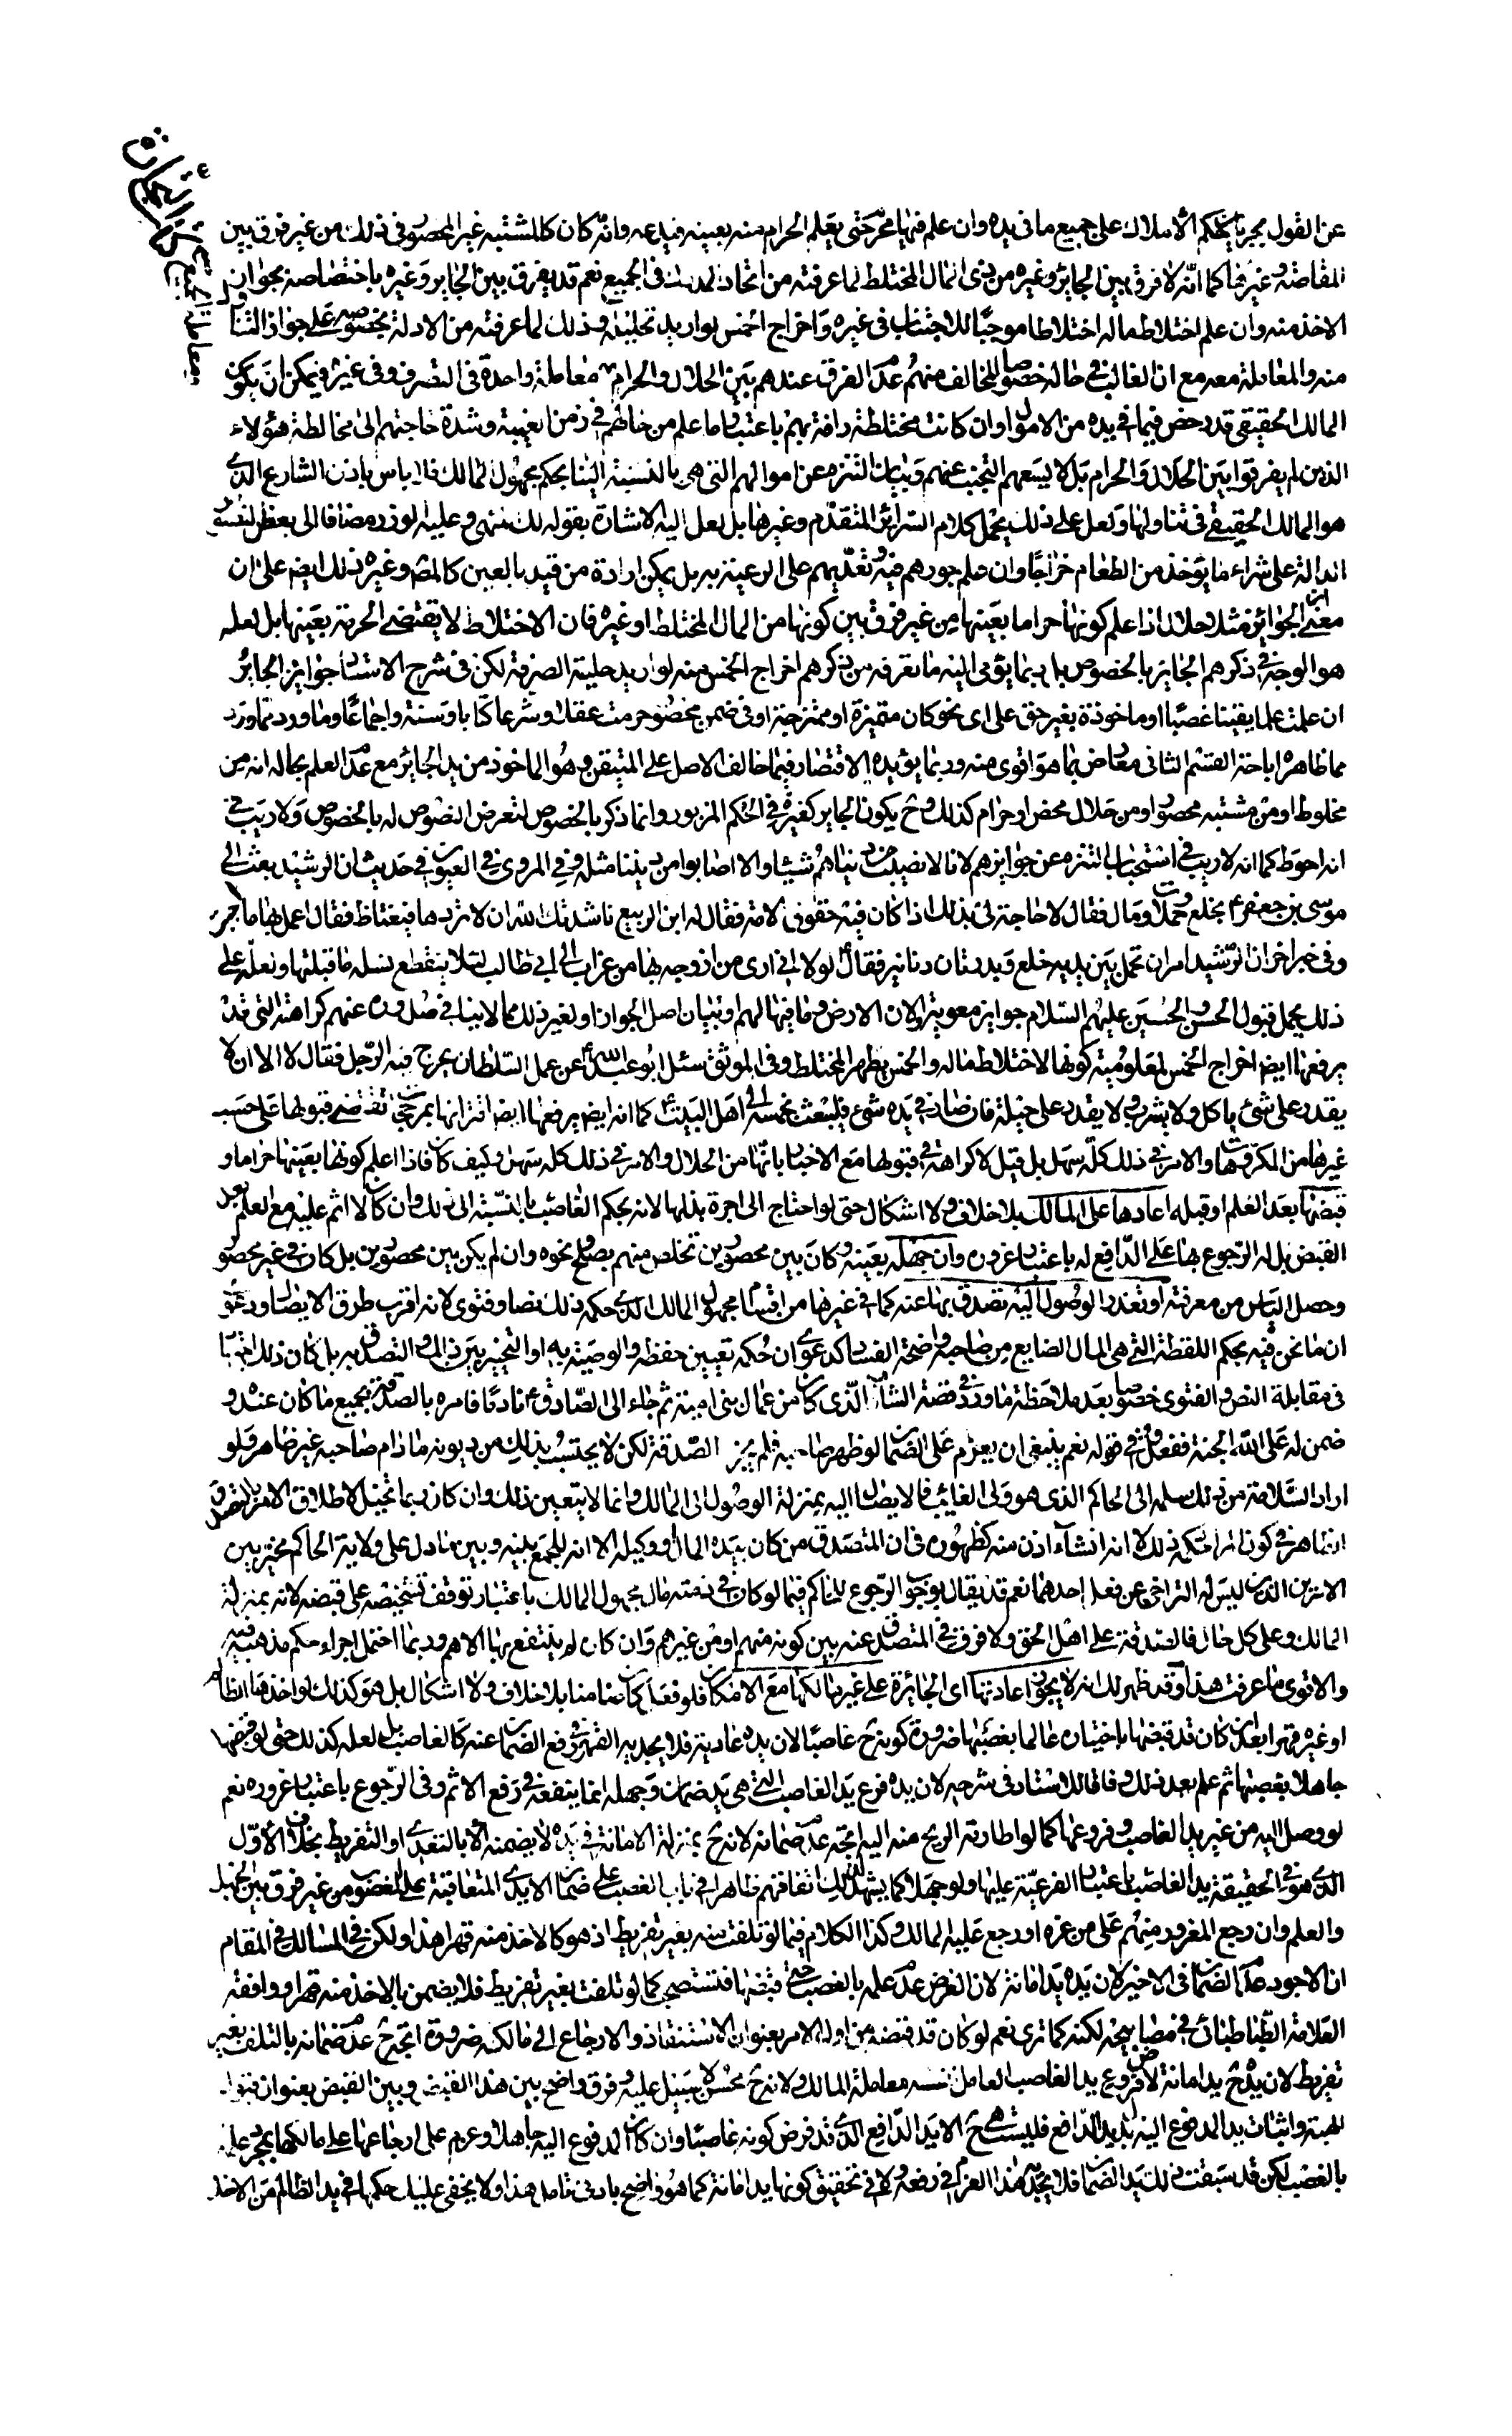 عن القول بجريان حكم الأملاك على جميع ما فى يده وان علم فيها محرم حتى يعلم الحرام منه بعينه فيدعه وانه كان كالمشتبه غير المحصور فى ذلك من غير فرق بين
المقاصة وغيرها كما انّه لا فرق بين الجائر وغيره من ذى المال المختلط لما عرفته من اتحاد المدرك فى الجميع نعم قد يفرق بين الجاير وغيره باختصاصه بجواز
الاخذ منه وان علم اختلاط ماله اختلاطا موجبًا للاجتناب فى غيره واخراج الخمس لو اريد تحليله وذلك لما عرفته من الادلة بخصوصه على جواز التناول
منه والمعاملة معه مع ان الغالب فى حاله خصوصا المخالف منهم عدم الفرق عندهم بين الحلال والحرام معاملة واحدة فى التصرف وفى غيره ويمكن ان يكون
المالك الحقيقى قد رخص فيما فى يده من الاموال وان كانت مختلطة رافة بهم باعتبار ما علم من حالهم فى زمن الغيبة وشدة حاجتهم الى مخالطة هؤلاء
الذين لم يفرقوا بين الحلال والحرام بل لا يسعهم التجنب عنهم وبيان التنزه عن اموالهم التى هى بالنسبة الينا بحكم مجهول المالك فلا باس باذن الشارع الذى
هو المالك الحقيقى فى تناولها ولعل على ذلك يحمل كلام السرائر المتقدم وغيرها بل لعل اليه الاشارة بقوله لك المهنى وعليه الوزر مضافا الى بعض النصوص
الدالة على شراء ما يؤخذ من الطعام خراجًا وان علم جورهم فيه وتعدّيهم على الرعية به بل يمكن ارادة من قيد بالعين كالمصنف وغيره ذلك ايضا على ان
معنى الجوائز مثلا حلال اذا علم كونها حراما بعينها من غير فرق بين كونها من المال المختلط او غيره فان الاختلاط لا يقتضى الحرمة بعينها بل لعله
هو الوجه فى ذكرهم الجاير بالخصوص بل ربما يؤمى اليه ما تعرفه من ذكرهم اخراج الخمس منه لو اريد حلية الصرفة لكن فى شرح الاستاد جوايز الجائر
ان علمت علما يقينا غصبًا او ماخوذة بغير حق على اى نحو كان متميزة او ممتزجة او فى ضمن محصور حرمت عقلا وشرعا كتابا وسنة واجماعًا وما ورد مما ورد
مما ظاهره اباحة القسم الثانى معارض بما هو اقوى منه وربما يؤيده الاقتصار فيما خالف الاصل على المتيقن وهو الماخوذ من يد الجائر مع عدم العلم بحاله انه من
مخلوط او من مشتبه محصور او من حلال محض او حرام كذلك وح يكون الجاير كغيره فى الحكم المزبور وانما ذكر بالخصوص لتعرض النصوص له بالخصوص ولا ريب فى
انه احوط كما انه لا ريب فى استحباب التنزه عن جوايزهم لانا لا نصيب من دنياهم شيئا والا اصابوا من ديننا مثله وفى المروى فى العيون فى حديث ان الرشيد بعث الى
موسى بن جعفر ع بخلع وحملان ومال فقال لا حاجة لى بذلك اذا كان فيه حقوق الامة فقال له ابن الربيع ناشدتك الله ان لا تردها فيغتاظ فقال اعمل بها ما احببت
وفى خبر اخر ان الرّشيد امر ان تحمل بين يديه خلع وبدرتان دنانير فقال لولا انى ارى من ازوجه بها من عزاب ال ابى طالب لئلا ينقطع نسله ما قبلتها ولعله على
ذلك يحمل قبول الحسن والحسين عليهم السّلام جوايز معوية او لان الارض وما فيها لهم او بيان اصل الجواز او لغير ذلك مما لا ينافى صدوره عنهم كراهته التى قد
يرفعها ايضا اخراج الخمس لمعلومية كونها لاختلاط ماله والخمس يطهر المختلط وفى الموثق سئل ابو عبد الله ع عن عمل السّلطان يخرج فيه الرّجل فقال لا الا ان لا
يقدر على شئ ياكل ولا يشرب ولا يقدر على حيلة فان صار فى يده شئ فليبعث بخمسه الى اهل البيت كما انه ايضا يرفعها ايضا اقترانها بمرجح تقتضى قبولها على حسب
غيرها من المكروهات والامر فى ذلك كله سهل بل قيل لا كراهة فى قبولها مع الاخبار بانّها من الحلال والامر فى ذلك كله سهل وكيف كان فاذا اعلم كونها بعينها حراما و
قبضها بعد العلم او قبله اعادها على المالك بلا خلاف ولا اشكال حتى لو احتاج الى اجرة بذلها لانه بحكم الغاصب بالنسبة الى ذلك وان كان لا اثم عليه مع العلم بعد
القبض بل له الرّجوع بها على الدّافع له باعتبار غروره وان جهله بعينه وكان بين محصورين تخلص منهم بصلح ونحوه وان لم يكن بين محصورين بل كان فى غير محصور
وحصل الياس من معرفته او تعذر الوصول اليه تصدق بها عنه كما فى غيرها من اقسام مجهول المالك الذى حكمه ذلك نصا وفتوى لانه اقرب طرق الايصال ودعوى
ان ما نحن فيه بحكم اللقطة التى هى المال الضايع من صاحبه واضحة الفساد كدعوى ان حكمه تعيين حفظه والوصية به او التخيير بين ذلك والتصدق به بل كان ذلك اجتهادًا
فى مقابلة النص والفتوى خصوصا بعد ملاحظة ما ورد فى قصة الشاب الّذى كان من عمال بنى امية ثم جاء الى الصّادق ع نادمًا فامره بالصدقة بجميع ما كان عنده و
ضمن له على الله الجنة ففعل وفى قوله نعم ينبغى ان يعزم على الضمان لو ظهر صاحبه فلم يجز الصّدقة لكن لا يحتسب بذلك من ديونه ما دام صاحبه غير ظاهر ولو
اراد السّلامة من ذلك سلمه الى الحاكم الذى هو ولى الغائب فالايصال اليه بمنزلة الوصول الى المالك وانما لا يتعين ذلك وان كان ربما تخيل لاطلاق الامر بالتصدق
الظاهر فى كون امرا حكميا كذلك لا انه انشاء اذن منه كظهوره فى ان المتصدق من كان بيده المال ووكيله الا انه للجمع بينه وبين ما دل على ولاية الحاكم مخير بين
الامرين الذين ليس له التراخى عن فعل احدهما نعم قد يقال بوجوب الرّجوع للحاكم فيما لو كان فى ذمته مال مجهول المالك باعتبار توقف تشخيصه على قبضه لانه بمنزلة
المالك وعلى كل حال فالصدقة على اهل الحق ولا فرق فى المتصدق عنه بين كونه منهم او من غيرهم وان كان لم ينتفع بها الا هم وربما احتمل اجراء حكم مذهبه فيه
والاقوى ما عرفت هذا وقد ظهر لك انه لا يجوز اعادتها اى الجائزة على غير مالكها مع الامكان فلو فعل كان ضامنا بلا خلاف ولا اشكال بل هو كذلك لو اخذها الظالم
او غيره قهرا بعد ان كان قد قبضها باختياره عالما بغصبها ضرورة كونه ح غاصبًا لان يده عادية فلا يجديه القهر فى رفع الضمان عنه كالغاصب بل لعله كذلك حتى لو قبضها
جاهلا بغصبها ثم علم بعد ذلك وفاقا للاستاد فى شرحه لان يده فرع يد الغاصب التى هى يد ضمان وجهله انما ينفعه فى رفع الاثم وفى الرّجوع باعتبار غروره نعم
لو وصل اليه من غير يد الغاصب وفروعها كما لو اطارته الريح منه اليه اتجه عدم ضمانه لانه ح بمنزلة الامانة فى يده لا يضمنه الا بالتعدى او التفريط بخلاف الاوّل
الذى هو فى الحقيقة يد الغاصب باعتبار الفرعيّة عليها ولو جهلا كما يشهد لذلك اتفاقهم ظاهرا فى باب الغصب على ضمان الايدى المتعاقبة على المغصوب من غير فرق بين الجهل
والعلم وان رجع المغرور منهم على من غره او رجع عليه المالك وكذا الكلام فيما لو تلفت منه بغير تفريط اذ هو كالاخذ منه قهرا هذا ولكن فى المسالك فى المقام
ان الاجود عدم الضمان فى الاخير لان يده يد امانة لان الفرض عدم علمه بالغصب حتى قبضها فتستصحب كما لو تلفت بغير تفريط فلا يضمن بالاخذ منه قهرا ووافقه
العلامة الطّباطبائى فى مصابيحه لكنه كما ترى نعم لو كان قد قبضه من اول الامر بعنوان الاستنقاذ والارجاع الى مالكه ضرورة اتجه ح عدم ضمانه بالتلف بغير
تفريط لان يده ح يد امانة لا فروع يد الغاصب العامل نفسه معاملة المالك ولانه ح محسن لا سبيل عليه وفرق واضح بين هذا القبض وبين القبض بعنوان قبول
الهبة واثبات يد المدفوع اليه بدل يد الدّافع فليست هى ح الا يد الدّافع الذى قد فرض كونه غاصبًا وان كان المدفوع اليه جاهلا وعزم على ارجاعها على مالكها بمجرد علمه
بالغصب لكن قد سبقت ذلك يد الضمان فلا يجدى هذا العزم فى رفعه ولا فى تحقيق كونها يد امانة كما هو واضح بادنى تامل هذا ولا يخفى عليك حكمها فى يد الظالم من الاخذ